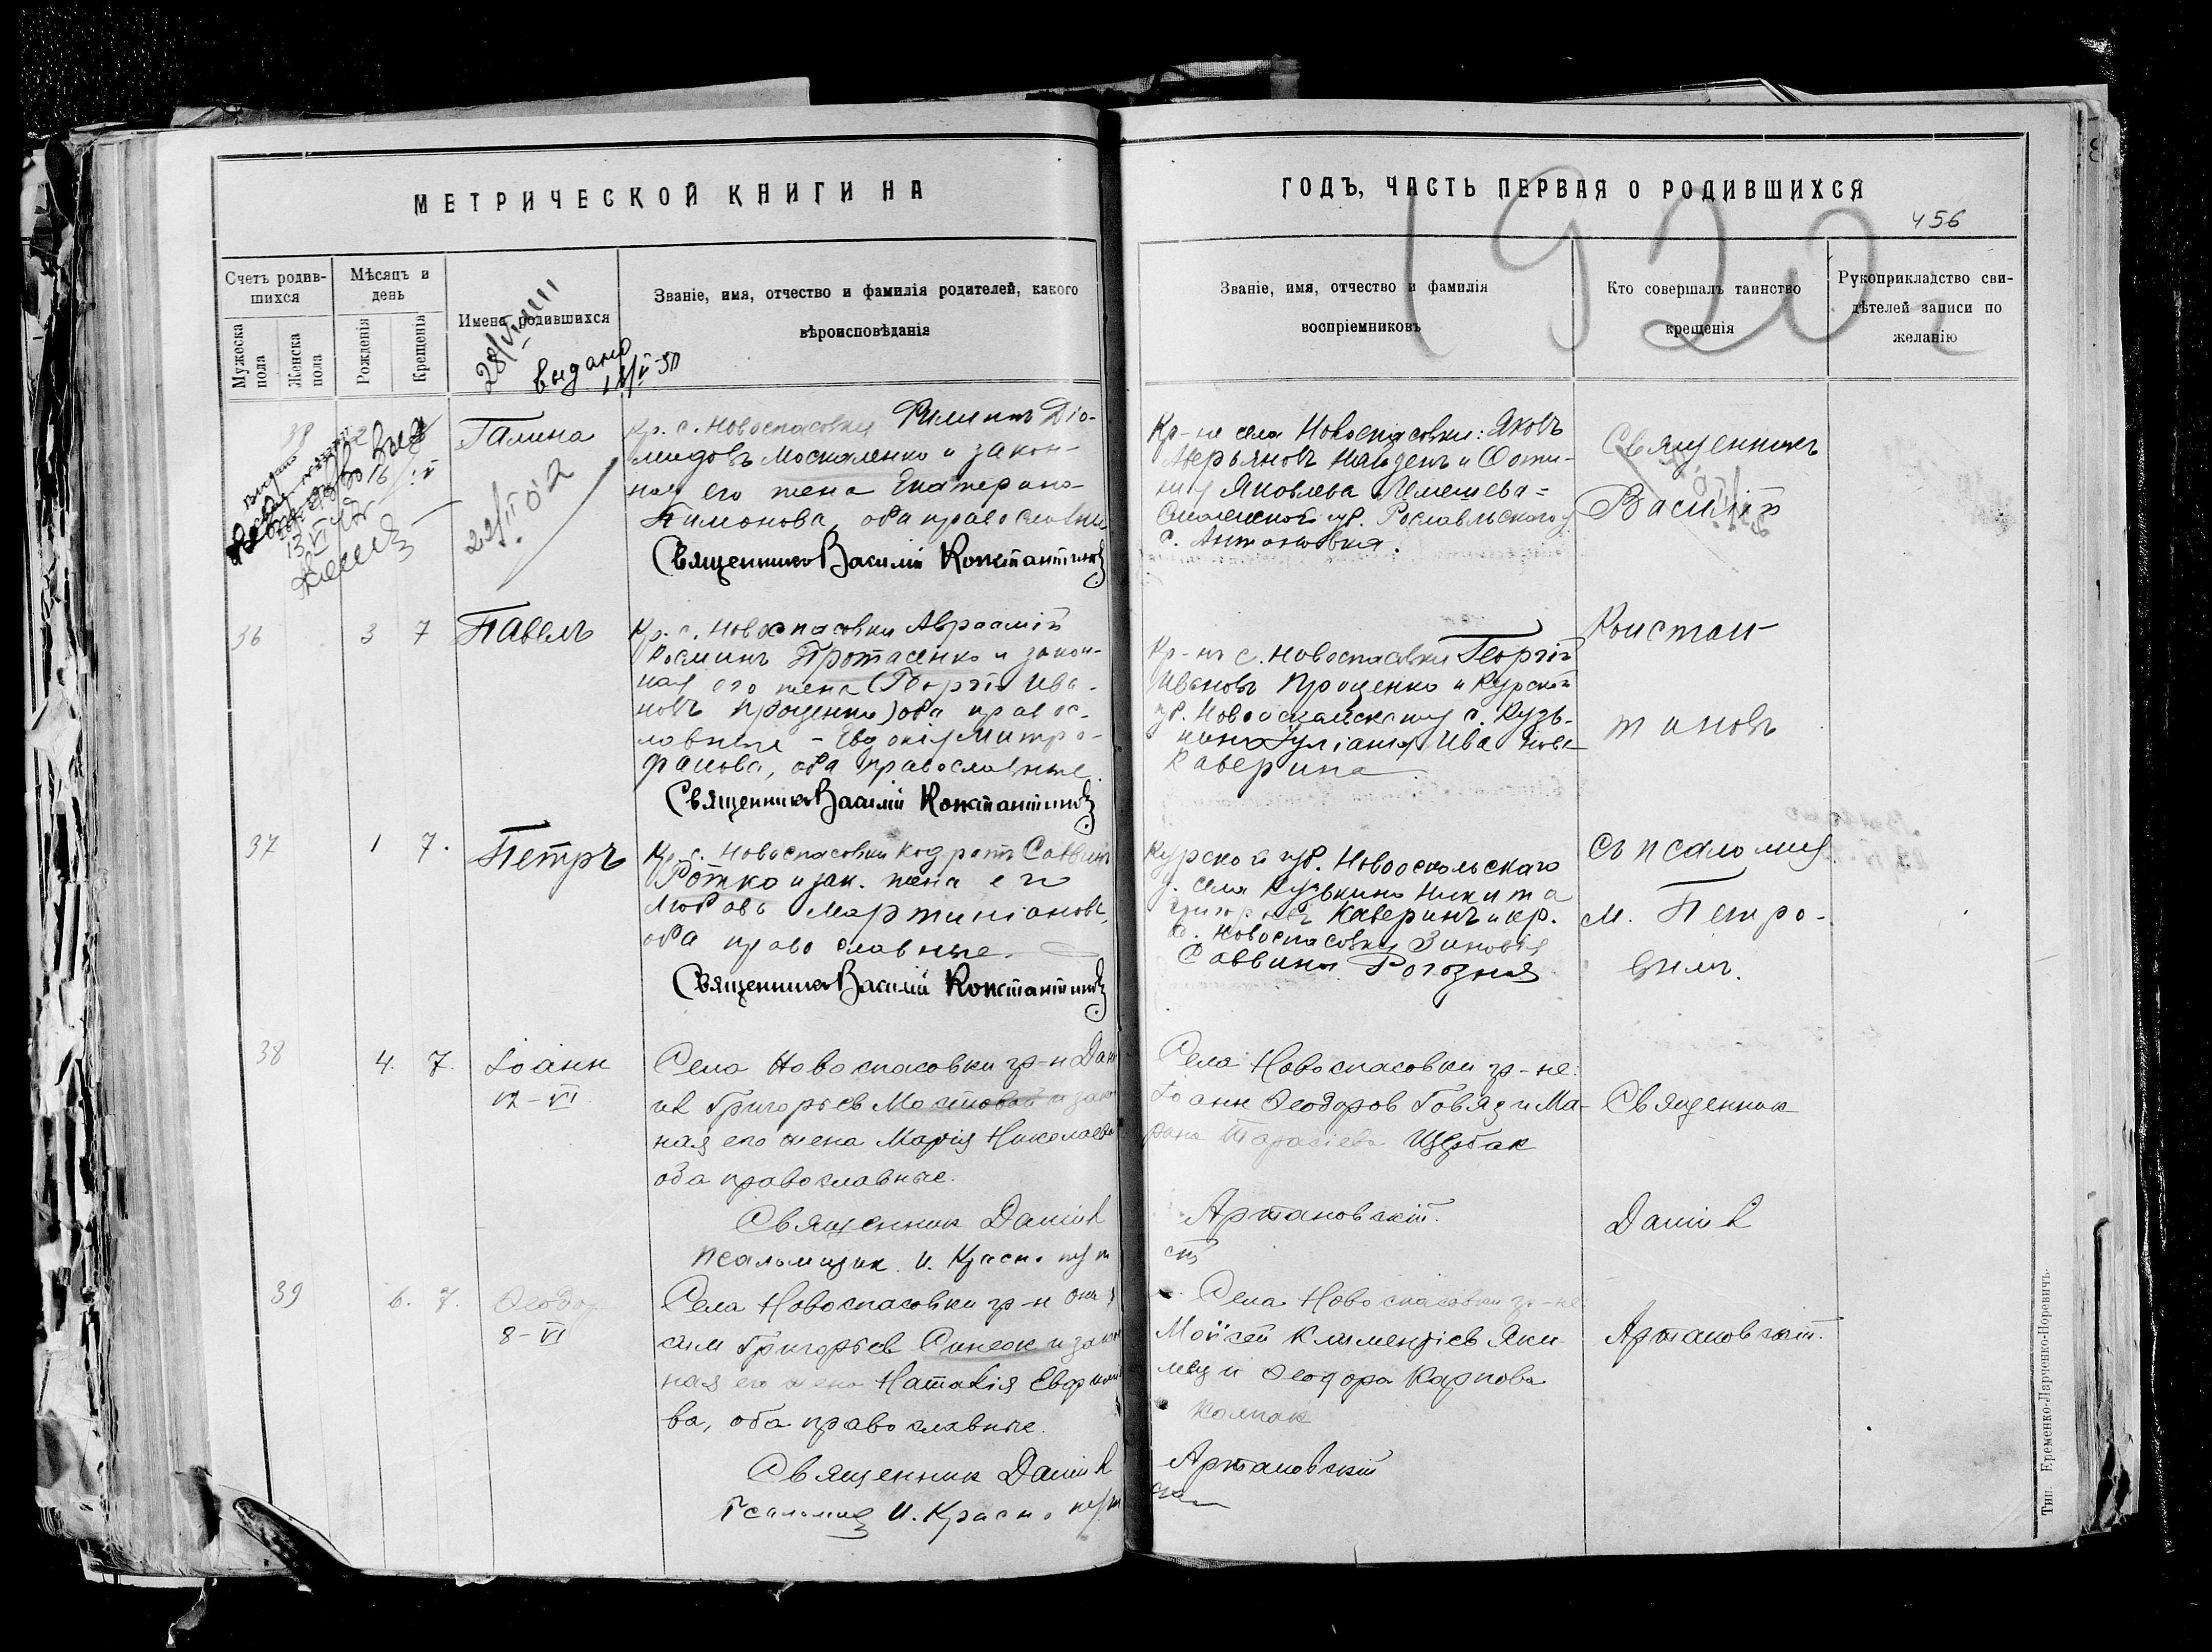 МЕТРИЧЕСКОЙ КНИГИ НА
ГОДЪ, ЧАСТЬ ПЕРВАЯ О РОДИВШИХСЯ
1920
456
Счетъ родив-
шихся
Мужеска
пола
Женска
пола
Мѣсяцъ и
день
Рожденія
Крещенія
Имена родившихся
Званіе, имя, отчество и фамилія родителей, какого
вѣроисповѣданія
Званіе, имя, отчество и фамилія
воспріемниковъ
Кто совершалъ таинство
крещенія
Рукоприкладство сви-
дѣтелей записи по
желанію
выдано
Галина
Кр. с. Новоспасовки Филиппъ Діо-
мидовъ Москаленко и закон-
ная его жена Екатерина
оба православные
Священникъ Василій Константиновъ
Кр-не села Новоспасовки: Яковъ
Аверьяновъ
Яковлева
Смоленской губ. Рославльскаго у.
с. Антоновка.
Священникъ
Василій
36 3 7 Павелъ
Кр. с. Новоспасовки Авраамій
Протасенко и закон-
ная его жена (Георгій Ива-
новъ Проценко) оба правос-
лавные - Евдокія Митро-
фанова, оба православные.
Священникъ Василій Константиновъ
Кр-нъ с. Новоспасовки Георгій
Ивановъ Проценко и Курской
губ. Новооскольскаго у с. Кузь-
кина Іуліанія Иванова
Каверина
Констан-
тиновъ
37 1 7. Петръ
Кр. с. Новоспасовки Кодратъ Саввинъ
Ротко и зак. жена его
Любовь Мартиніанова,
оба православные.
Священникъ Василій Константиновъ
Курской губ. Новооскольскаго
у. села Кузькино Никита
Каверинъ и кр.
с. Новоспасовки Зиновія
Саввина Рогозная
Съ псаломщ.
М. Петро-
вымъ.
38 4. 7. Іоанн
12-VI
Села Новоспасовки гр-н Дани
ил Григорьев Мостовой и закон
ная его жена Марія Николаева
оба православные.
Священник Даниил
Псаломщик И. Красно
Села Новоспасовки гр-не:
Іоанн Ѳеодоров Говяз и Ма-
рина Тарасіева Щербак
Артановскій.
Священник
Даниил
39 6. 7. Ѳеодор
8-VI
Села Новоспасовки гр-н Они
сим Григорьев Синеок и закон
ная его жена Наталія
ва, оба православные.
Священник Даниил
Псаломщ И. Красно
Села Новоспасовки гр-не
Мойсей Климентіев Яки-
мец и Ѳеодора Карпова
Колпак
Артановскій
Артановскій.
Тип. Еременко-Ларченко-Норевичъ.